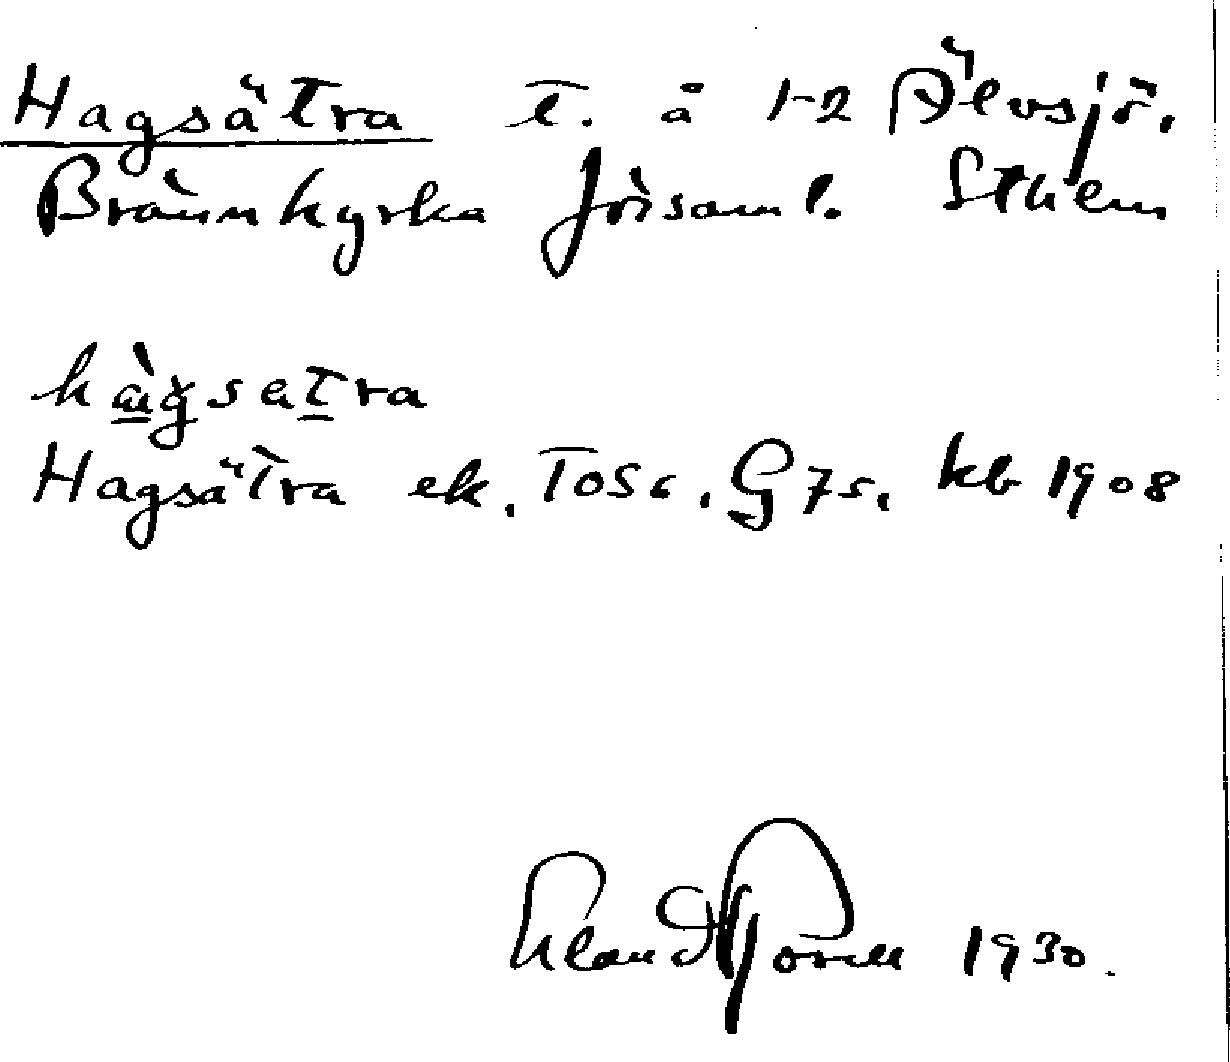 Hagsätra t. å 1-2 Älvsjö.
Brännkyrka församl. Sthlm
hàgsatra
Hagsätra ek. Tosc. G75. kb 1908
Erland Rosell 1930.